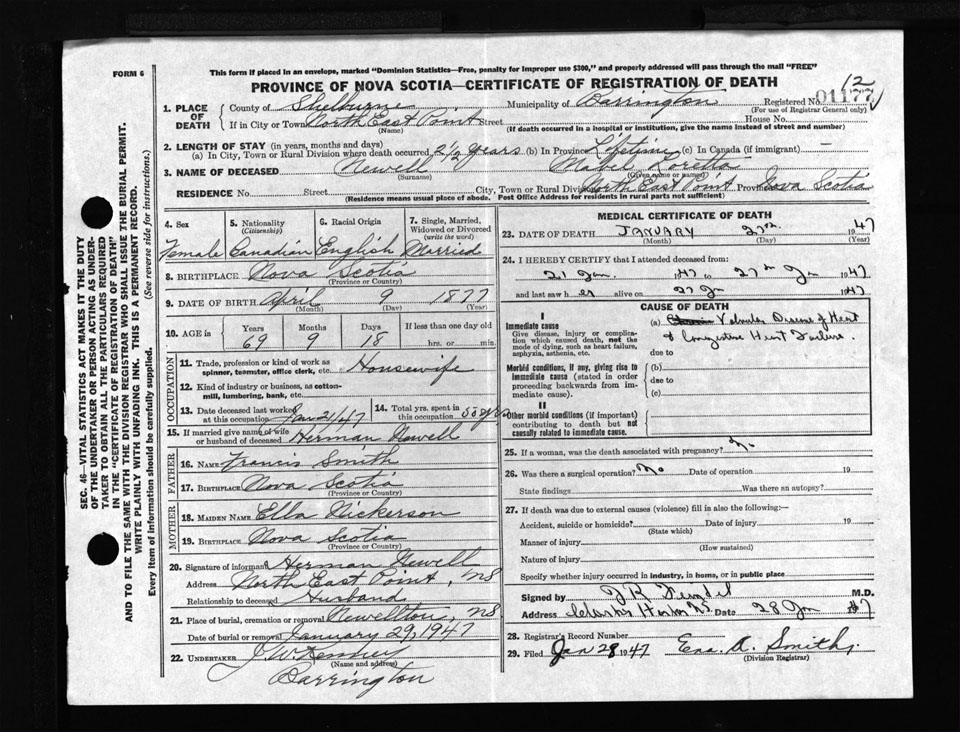 FORM 6
This form if placed in an envelope, marked "Dominion Statistics—Free, penalty for improper use $300," and properly addressed will pass through the mail "FREE"
PROVINCE OF NOVA SCOTIA—CERTIFICATE OF REGISTRATION OF DEATH
12
1. PLACE OF DEATH
County of Shelburne Municipality of Barrington Registered No. 01177
(For use of Registrar General only)
If in City or Town North East Point Street House No.
(Name) (If death occurred in a hospital or institution, give the name instead of street and number)
2. LENGTH OF STAY (in years, months and days)
(a) In City, Town or Rural Division where death occurred 2 1/2 years (b) In Province Lifetime (c) In Canada (if immigrant) —
3. NAME OF DECEASED Newell Mabel Loretta
(Surname) (Given name or names)
RESIDENCE No. Street City, Town or Rural Division North East Point Province Nova Scotia
(Residence means usual place of abode. Post Office Address for residents in rural parts not sufficient)
4. Sex Female
5. Nationality (Citizenship) Canadian
6. Racial Origin English
7. Single, Married, Widowed or Divorced (write the word) Married
8. BIRTHPLACE Nova Scotia
(Province or Country)
9. DATE OF BIRTH April 9 1877
(Month) (Day) (Year)
10. AGE in Years Months Days If less than one day old
69 9 18 hrs. or min.
OCCUPATION
11. Trade, profession or kind of work as spinner, teamster, office clerk, etc. Housewife
12. Kind of industry or business, as cotton-mill, lumbering, bank, etc.
13. Date deceased last worked at this occupation Jan 21/47
14. Total yrs. spent in this occupation 50 yrs
15. If married give name of wife or husband of deceased Herman Newell
FATHER
16. NAME Francis Smith
17. BIRTHPLACE Nova Scotia
(Province or Country)
MOTHER
18. MAIDEN NAME Ella Nickerson
19. BIRTHPLACE Nova Scotia
(Province or Country)
20. Signature of informant Herman Newell
Address North East Point, NS
Relationship to deceased Husband
21. Place of burial, cremation or removal Newellton, NS
Date of burial or removal January 29, 1947
22. UNDERTAKER
(Name and address)
Barrington
MEDICAL CERTIFICATE OF DEATH
23. DATE OF DEATH JANUARY 27th 1947
(Month) (Day) (Year)
24. I HEREBY CERTIFY that I attended deceased from:
21 Jan 1947 to 27th Jan 1947
and last saw her alive on 27 Jan 1947
CAUSE OF DEATH
I
Immediate cause
Give disease, injury or complication which caused death, not the mode of dying, such as heart failure, asphyxia, asthenia, etc.
(a) Valvular Disease of Heart
& Congestive Heart Failure
due to
Morbid conditions, if any, giving rise to immediate cause (stated in order proceeding backwards from immediate cause).
(b)
due to
(c)
II
Other morbid conditions (if important) contributing to death but not causally related to immediate cause.
25. If a woman, was the death associated with pregnancy? No
26. Was there a surgical operation? No Date of operation 19
State findings Was there an autopsy?
27. If death was due to external causes (violence) fill in also the following:—
Accident, suicide or homicide? Date of injury 19
(State which)
Manner of injury
(How sustained)
Nature of injury
Specify whether injury occurred in industry, in home, or in public place
Signed by M.D.
Address Clarks Harbor NS Date 28 Jan 47
28. Registrar's Record Number
29. Filed Jan 28 1947 A. Smith
(Division Registrar)
SEC. 46—VITAL STATISTICS ACT MAKES IT THE DUTY
OF THE UNDERTAKER OR PERSON ACTING AS UNDER-
TAKER TO OBTAIN ALL THE PARTICULARS REQUIRED
IN THE "CERTIFICATE OF REGISTRATION OF DEATH"
AND TO FILE THE SAME WITH THE DIVISION REGISTRAR WHO SHALL ISSUE THE BURIAL PERMIT.
WRITE PLAINLY WITH UNFADING INK. THIS IS A PERMANENT RECORD.
Every item of information should be carefully supplied. (See reverse side for instructions.)